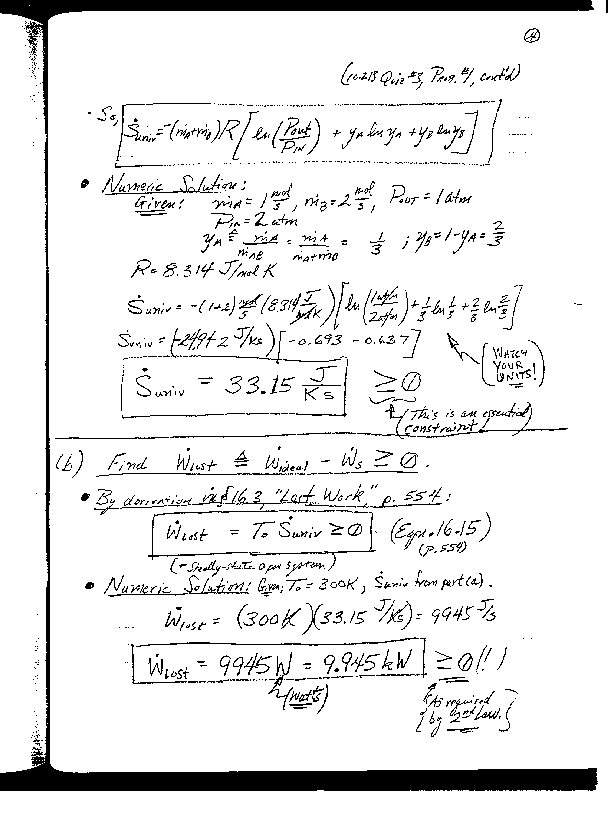 4
(10.213 Quiz #3, Prob. #1, cont'd)
So, Ṡuniv = -(ṁA+ṁB)R[ln(Pout/PIN) + yA ln yA + yB ln yB]
• Numeric Solution:
Given: ṁA = 1 mol/s, ṁB = 2 mol/s, POUT = 1 atm
PIN = 2 atm
yA ≙ ṁA/ṁAB = ṁA/(ṁA+ṁB) = 1/3 ; yB = 1-yA = 2/3
R = 8.314 J/mol K
Ṡuniv = -(1+2) mol/s (8.314 J/mol K)[ln(1 atm/2 atm) + 1/3 ln 1/3 + 2/3 ln 2/3]
Ṡuniv = (-24.942 J/Ks)[-0.693 - 0.637]
(WATCH
YOUR
UNITS!)
Ṡuniv = 33.15 J/Ks ≥ 0
(This is an essential
constraint!)
(b) Find Ẇlost ≙ Ẇideal - Ẇs ≥ 0.
• By derivation in §16.3, "Lost Work," p. 554:
Ẇlost = T₀ Ṡuniv ≥ 0 (Eqn. 16-15)
(p. 554)
(- Steady-state open system)
• Numeric Solution: Given: T₀ = 300K, Ṡuniv from part (a).
Ẇlost = (300K)(33.15 J/Ks) = 9945 J/s
Ẇlost = 9945 W = 9.945 kW ≥ 0 (!)
(Watts)
[As required
by 2nd Law.]